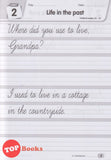 2
Life in the past
Where did you use to live,
Grandpa?
I used to live in a cottage
in the countryside.
TOP
Books